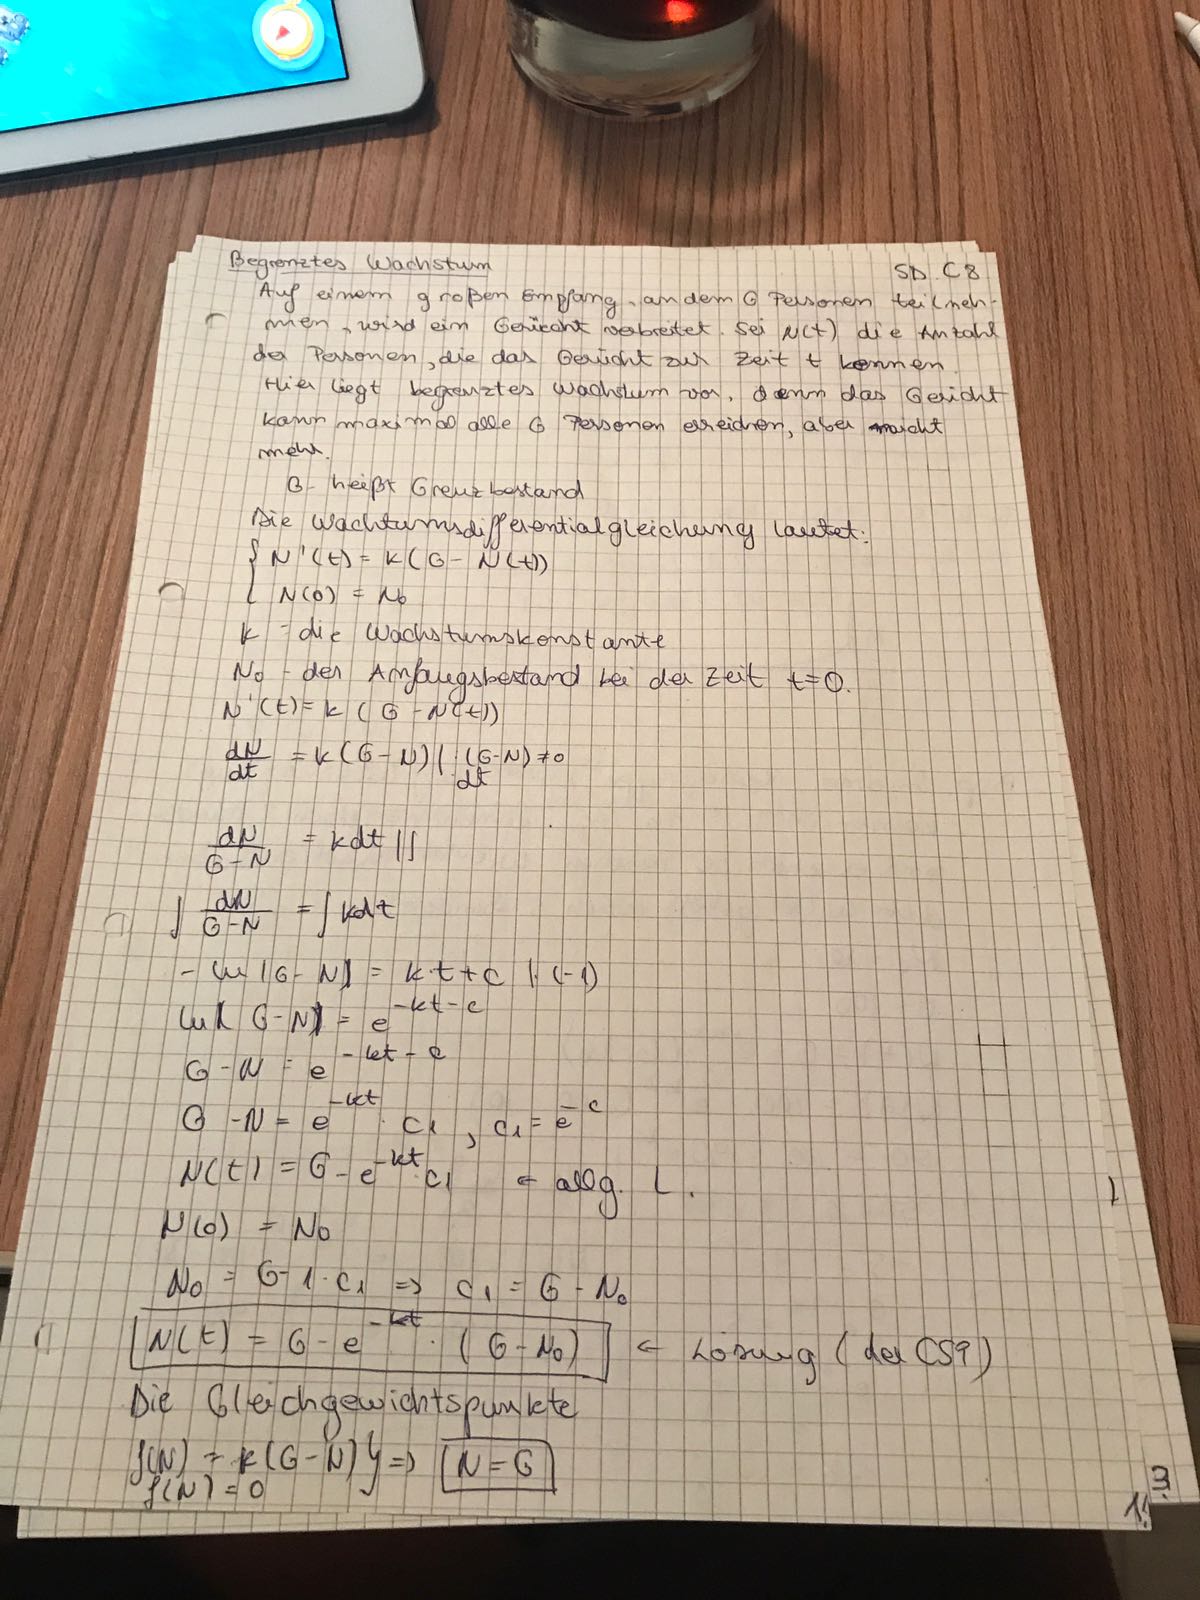 Begrenztes Wachstum SD. C8
Auf einem großen Empfang, an dem G Personen teilneh-
men, wird ein Gerücht verbreitet. Sei N(t) die Anzahl
der Personen, die das Gerücht zur Zeit t kennen.
Hier liegt begrenztes Wachstum vor, denn das Gerücht
kann maximal alle G Personen erreichen, aber nicht
mehr.
G - heißt Grenzbestand
Die Wachtumsdifferentialgleichung lautet:
{ N'(t) = k(G - N(t))
N(0) = N₀
k - die Wachstumskonstante
N₀ - der Anfangsbestand bei der Zeit t=0.
N'(t) = k (G - N(t))
dN/dt = k(G - N) | : (G-N) ≠ 0 dt
dN/(G-N) = kdt |∫
∫ dN/(G-N) = ∫ kdt
- ln |G - N| = k·t + c | ·(-1)
ln| G - N| = e^(-kt-c)
G - N = e^(-kt-c)
G - N = e^(-kt) · c₁ , c₁ = e^(-c)
N(t) = G - e^(-kt) · c₁ ← allg. L.
N(0) = N₀
N₀ = G - 1 · c₁ => c₁ = G - N₀
N(t) = G - e^(-kt) · (G - N₀) ← Lösung (der CS9)
Die Gleichgewichtspunkte
f(N) = k(G - N) } => N = G
f(N) = 0
1! 3!